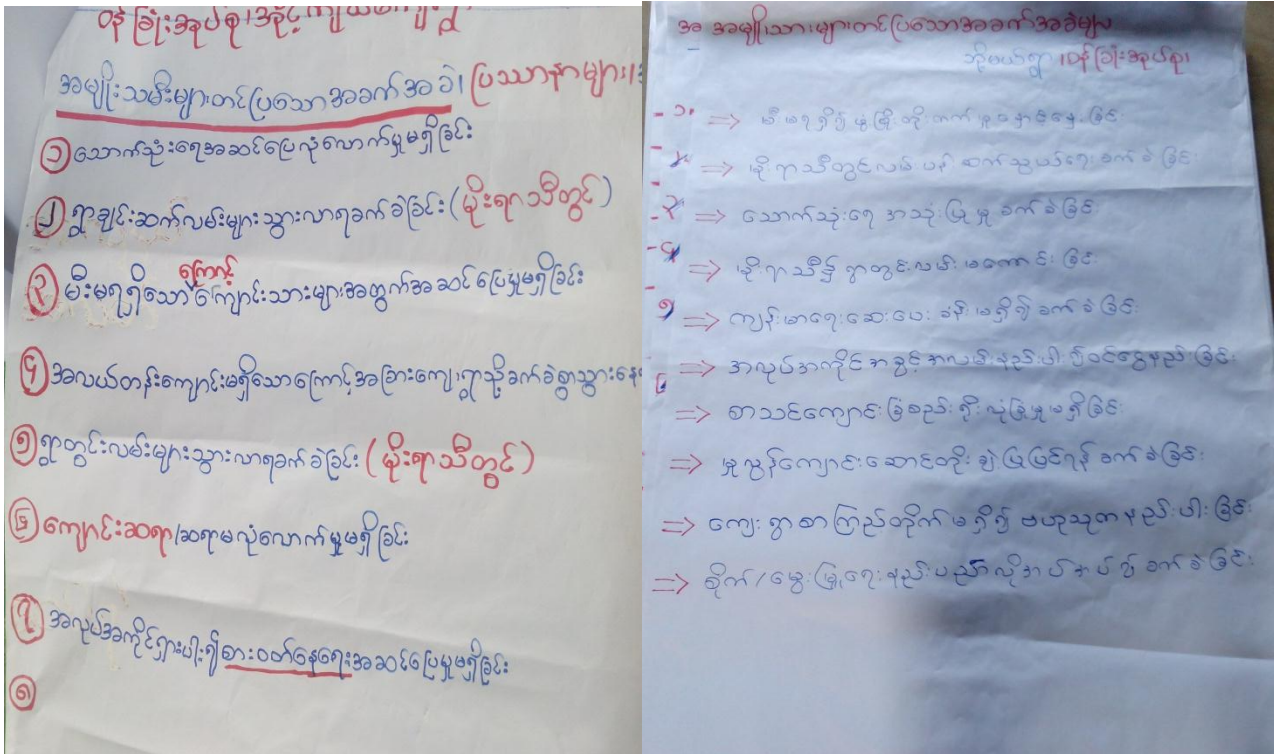 ဝန်ခြုံးအုပ်စု၊
အမျိုးသမီးများတင်ပြသောအခက်အခဲ၊ ပြဿာနာများ၊
၁ သောက်သုံးရေအဆင်ပြေလုံလောက်မှုမရှိခြင်း
၂ ရွာချင်းဆက်လမ်းများသွားလာရခက်ခဲခြင်း (မိုးရာသီတွင်)
၃ မီးမရရှိသော ကြောင့် ကျောင်းသားများအတွက်အဆင်ပြေမှုမရှိခြင်း
၄ အလယ်တန်းကျောင်းမရှိသောကြောင့်အခြားကျေးရွာသို့ခက်ခဲစွာသွားနေ
၅ ရွာတွင်းလမ်းများသွားလာရခက်ခဲခြင်း (မိုးရာသီတွင်)
၆ ကျောင်းဆရာ/ဆရာမလုံလောက်မှုမရှိခြင်း
၇ အလုပ်အကိုင်ရှားပါး၍စားဝတ်နေရေးအဆင်ပြေမှုမရှိခြင်း
၈
အ အမျိုးသားများတင်ပြသောအခက်အခဲများ
ဝန်ခြုံးအုပ်စု၊
၁. ⇒ မီးမရရှိ၍ ဖွံ့ဖြိုးတိုးတက်မှုနှောင့်နှေးခြင်း
၂ ⇒ မိုးရာသီတွင်လမ်းပန်းဆက်သွယ်ရေးခက်ခဲခြင်း
၃ ⇒ သောက်သုံးရေ အသုံးပြုမှု ခက်ခဲခြင်း
၄ ⇒ မိုးရာသီ၌ ရွာတွင်းလမ်း မကောင်းခြင်း
၅ ⇒ ကျန်းမာရေးဆေးပေးခန်းမရှိ၍ခက်ခဲခြင်း
၆ ⇒ အလုပ်အကိုင်အခွင့်အလမ်းနည်းပါး၍ဝင်ငွေနည်းခြင်း
⇒ စာသင်ကျောင်းခြံစည်းရိုးလုံခြုံမှုမရှိခြင်း
⇒ မူလွန်ကျောင်းဆောင်တိုးချဲ့ပြုပြင်ရန်ခက်ခဲခြင်း
⇒ ကျေးရွာစာကြည့်တိုက်မရှိ၍ ဗဟုသုတနည်းပါးခြင်း
⇒ စိုက်/မွေးမြူရေးနည်းပညာလိုအပ်ခက်ခဲခြင်း